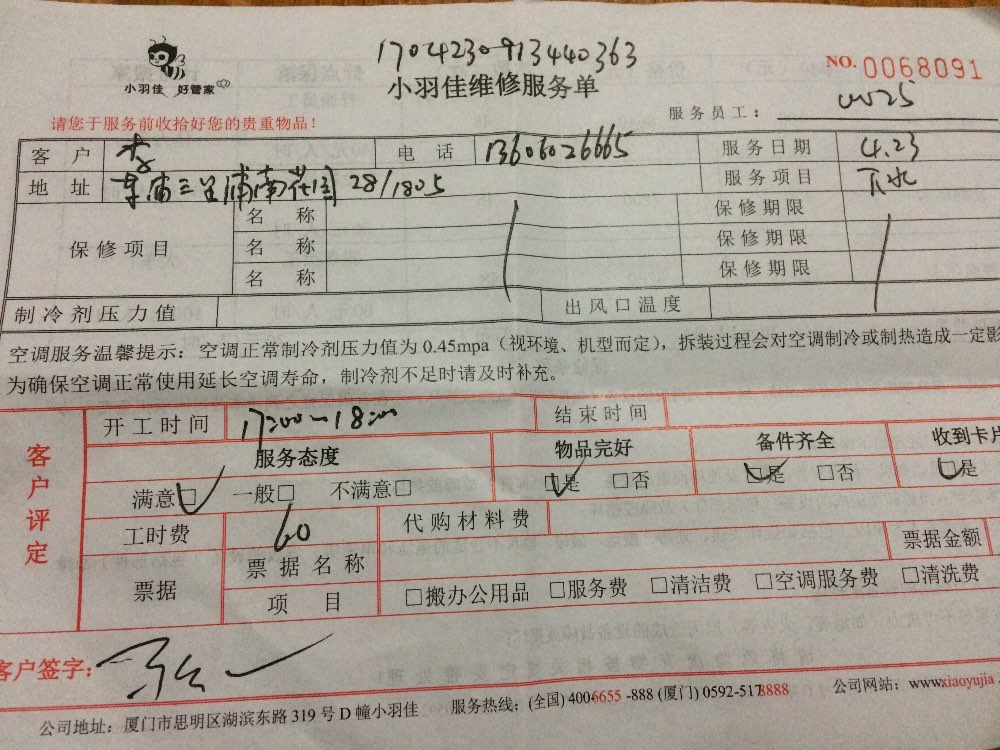 1704230913440363
小羽佳 好管家
小羽佳维修服务单
NO. 0068091
请您于服务前收拾好您的贵重物品！
服务员工：W25
客户 李 电话 13606026665 服务日期 4.23
地址 东浦三里浦南花园 28/1805 服务项目 下水
保修项目 名称 保修期限
名称 保修期限
名称 保修期限
制冷剂压力值 出风口温度
空调服务温馨提示：空调正常制冷剂压力值为 0.45mpa（视环境、机型而定），拆装过程会对空调制冷或制热造成一定影
为确保空调正常使用延长空调寿命，制冷剂不足时请及时补充。
客户评定
开工时间 17:00~18:00 结束时间
服务态度 物品完好 备件齐全 收到卡片
满意□ 一般□ 不满意□ □是 □否 □是 □否 □是
工时费 60 代购材料费
票据 票据名称 票据金额
项目 □搬办公用品 □服务费 □清洁费 □空调服务费 □清洗费
客户签字：
公司地址：厦门市思明区湖滨东路 319 号 D 幢小羽佳 服务热线：(全国) 400-6655 -888 (厦门) 0592-5178888 公司网站：www.xiaoyujia